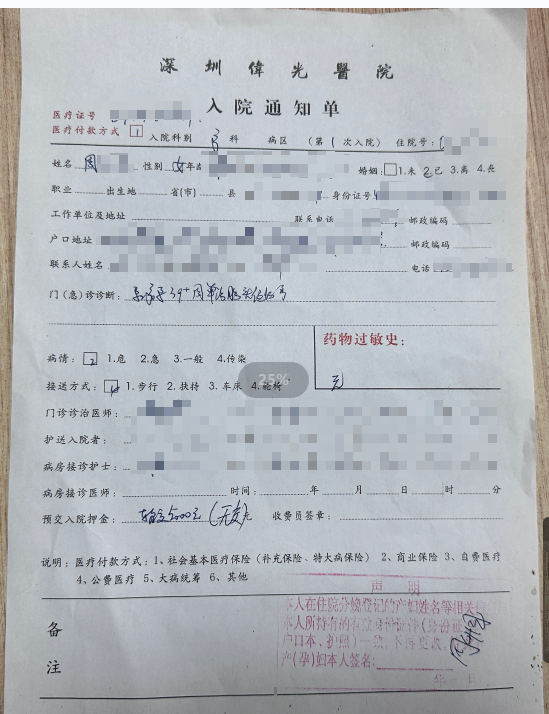 深圳偉光醫院
入院通知单
医疗证号
医疗付款方式 1 入院科别 科 病区 (第1次入院) 住院号:
姓名 周 性别 女 年龄 婚姻: 1.未 2.已 3.离 4.丧
职业 出生地 省(市) 县 身份证号
工作单位及地址 联系电话 邮政编码
户口地址 邮政编码
联系人姓名 电话
门(急)诊诊断: 39⁺周单活胎
药物过敏史:
病情: 1.危 2.急 3.一般 4.传染
接送方式: 1.步行 2.扶持 3.车床 4.轮椅
25%
无
门诊诊治医师:
护送入院者:
病房接诊护士:
病房接诊医师: 时间: 年 月 日 时 分
预交入院押金: 5000元 元 收费员签章:
说明: 医疗付款方式: 1、社会基本医疗保险 (补充保险、特大病保险) 2、商业保险 3、自费医疗
4、公费医疗 5、大病统筹 6、其他
声 明
本人在住院分娩登记的产妇姓名等相关
本人所持有的有效身份证件(身份证
户口本、护照)一致,不再更改。
产(孕)妇本人签名:
年 日
备
注